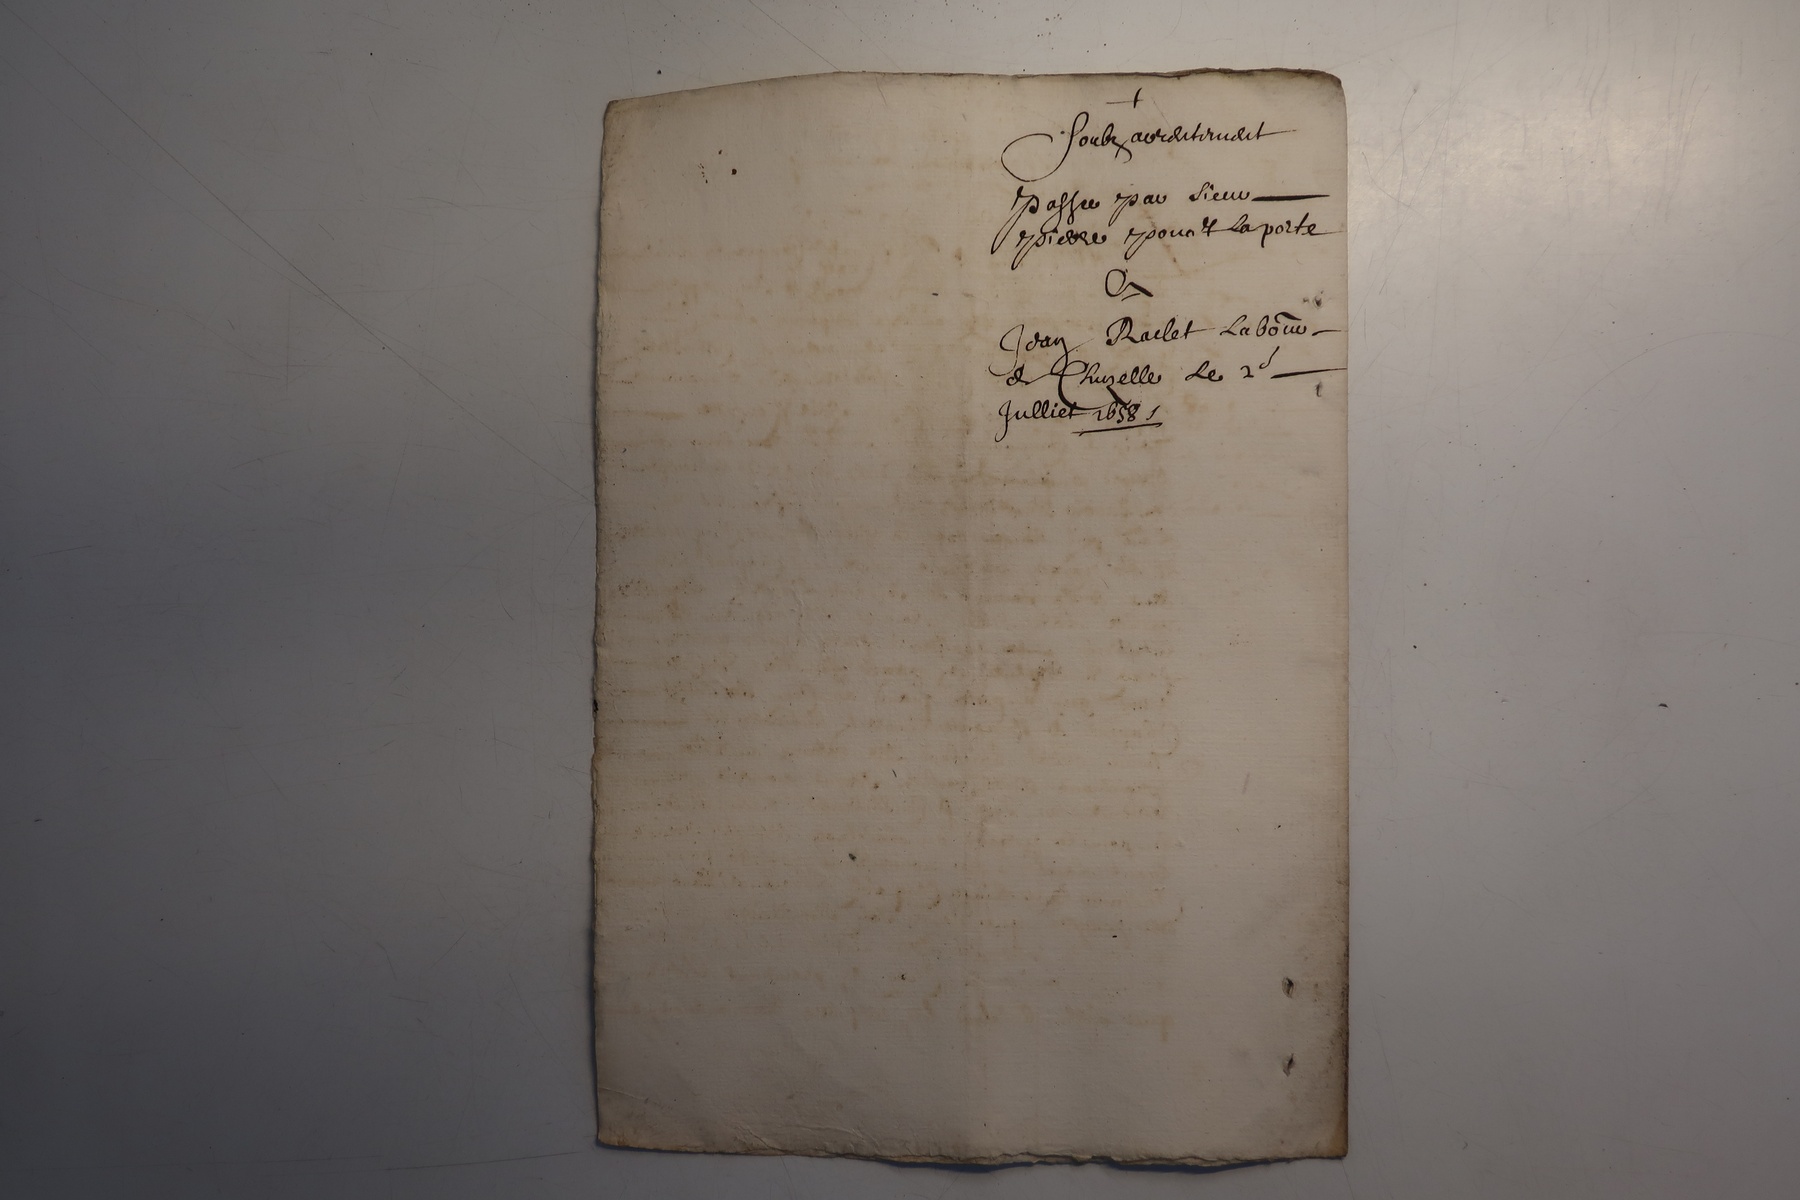 +
Soubz arrentement
Passe par sieur
pierre La porte
A
Jean Raclet Laboūr
de Chuzelle Le 2d
Julliet 1658